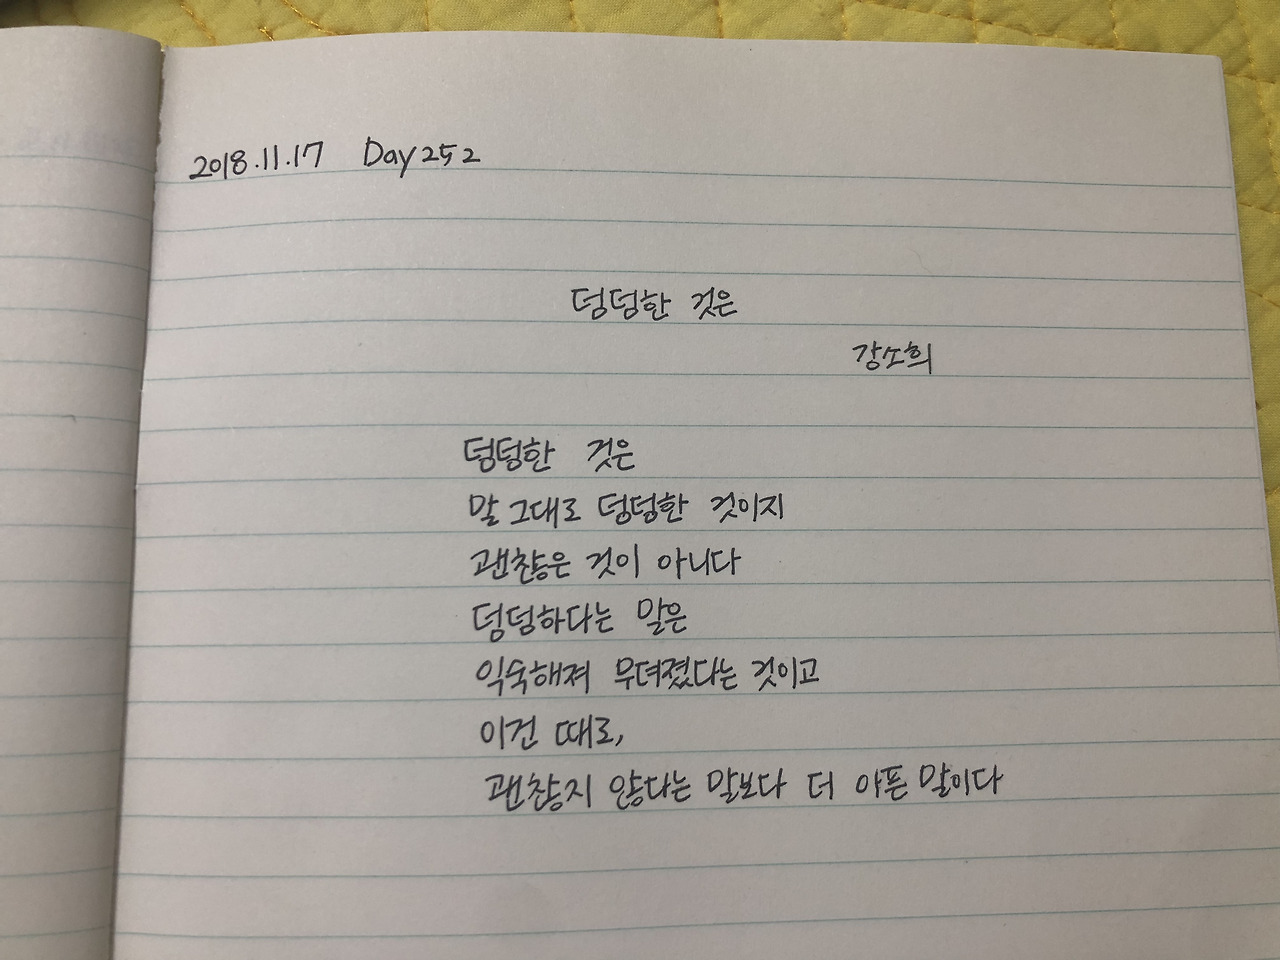 2018.11.17 Day 252
덩덩한 것은
강소희
덩덩한 것은
말 그대로 덩덩한 것이지
괜찮은 것이 아니다
덩덩하다는 말은
익숙해져 무뎌졌다는 것이고
이건 때로,
괜찮지 않다는 말보다 더 아픈 말이다